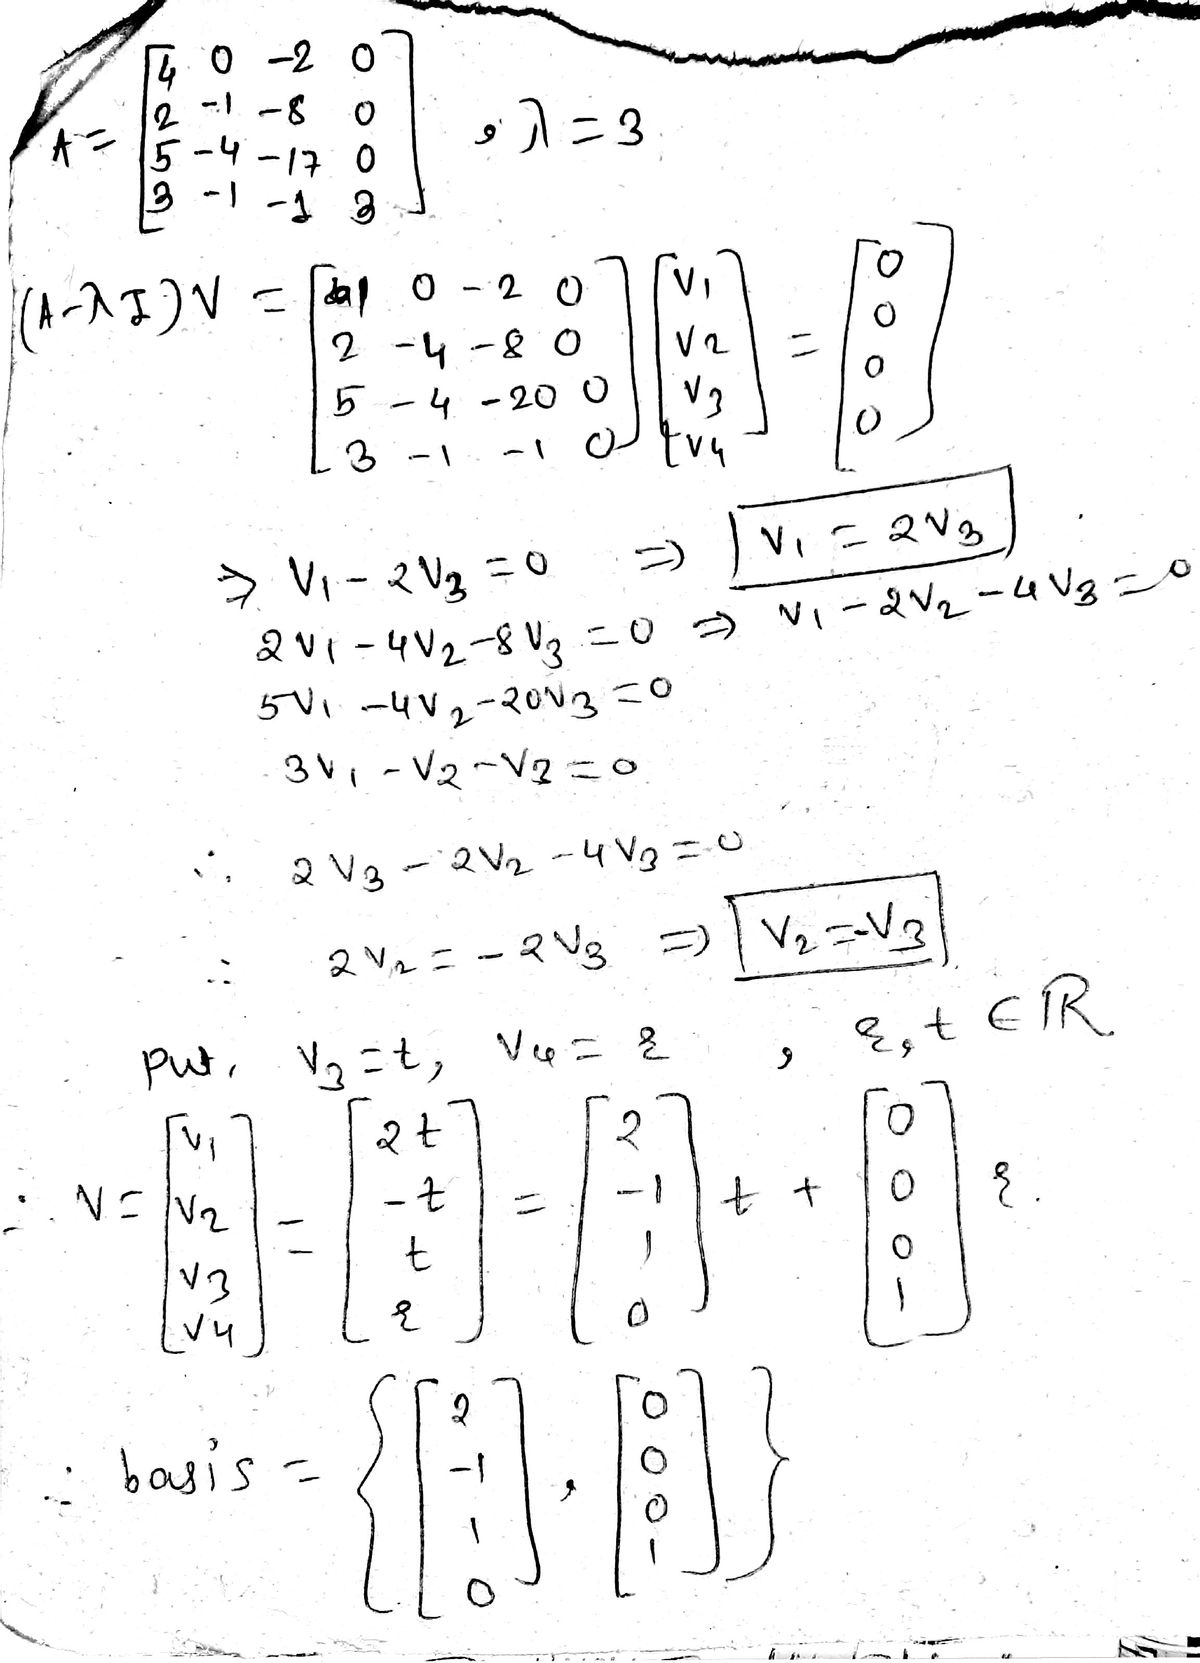 A = [4 0 -2 0
2 -1 -8 0
5 -4 -17 0
3 -1 -1 3] , λ = 3
(A-λI)V = [1 0 -2 0
2 -4 -8 0
5 -4 -20 0
3 -1 -1 0] [V1
V2
V3
V4] = [0
0
0
0]
⇒ V1 - 2V3 = 0 ⇒ V1 = 2V3
2V1 - 4V2 - 8V3 = 0 ⇒ V1 - 2V2 - 4V3 = 0
5V1 - 4V2 - 20V3 = 0
3V1 - V2 - V3 = 0
∴ 2V3 - 2V2 - 4V3 = 0
∴ 2V2 = -2V3 ⇒ V2 = -V3
put, V3 = t, V4 = ξ , ξ, t ∈ ℝ
∴ V = [V1
V2
V3
V4] = [2t
-t
t
ξ] = [2
-1
1
0] t + [0
0
0
1] ξ.
∴ basis = { [2
-1
1
0] , [0
0
0
1] }